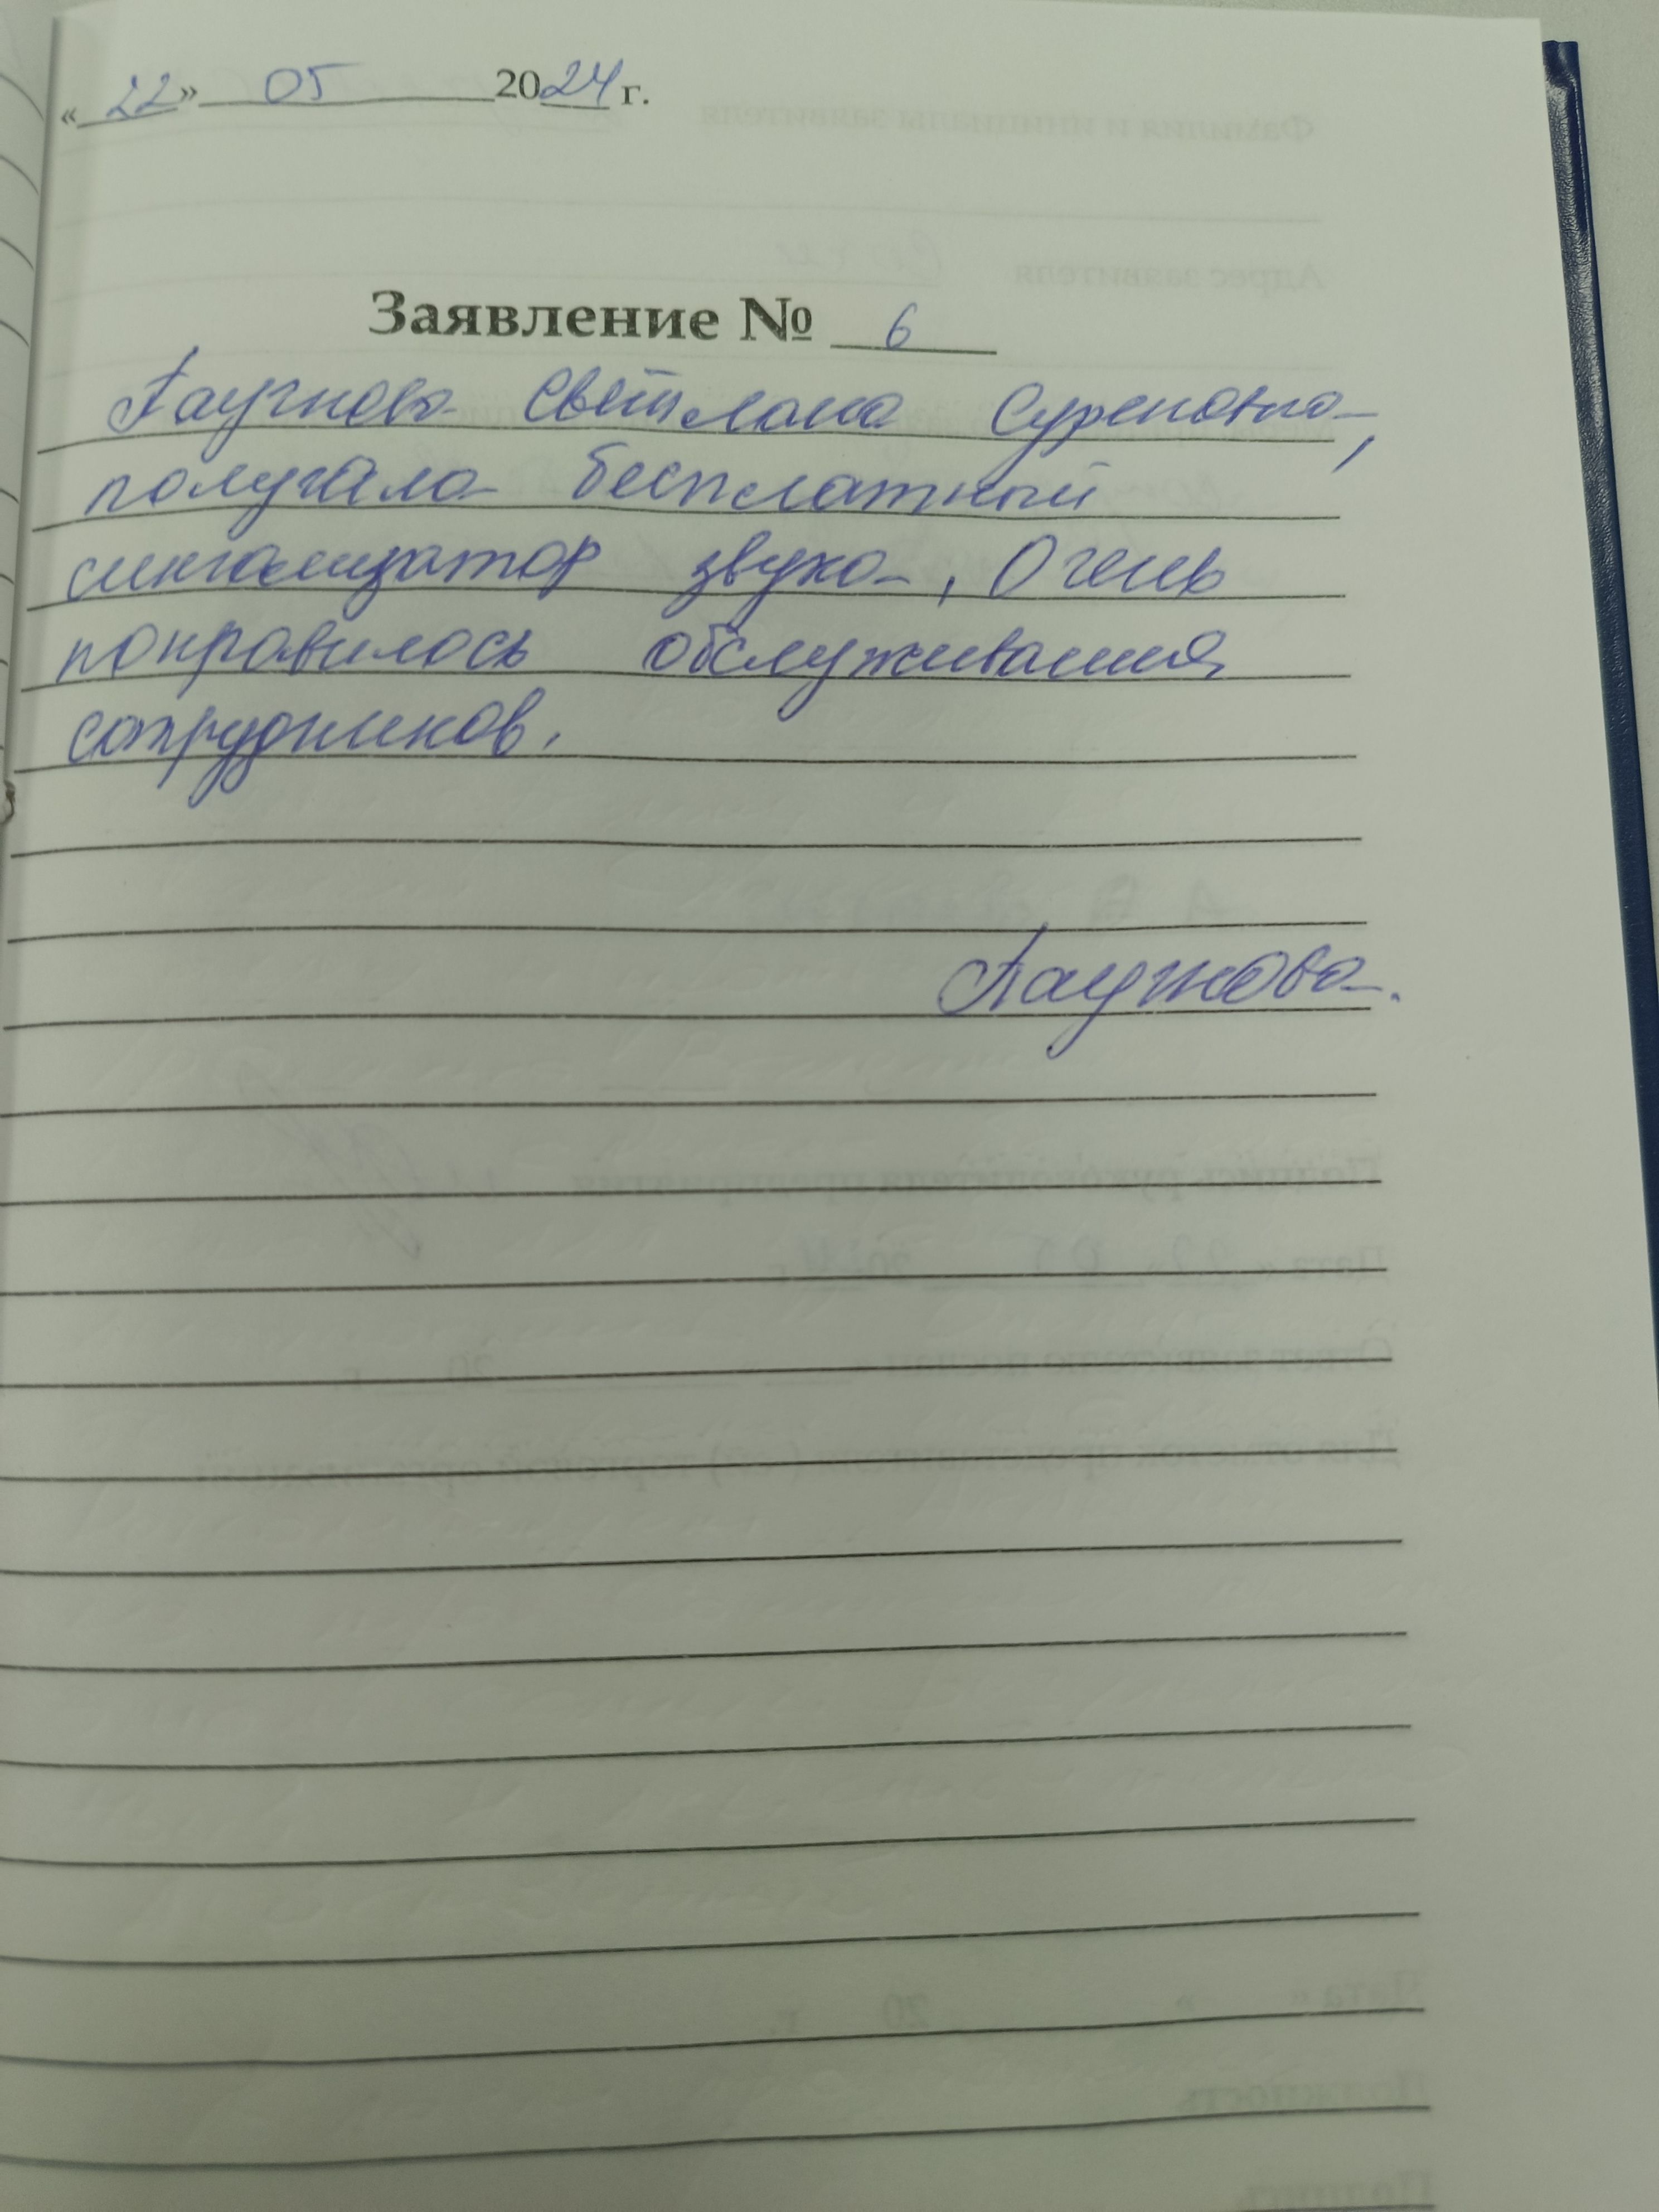 «22» 05 2024 г.
Заявление № 6
Светлана Суреновна,
получила бесплатный
сингамизатор звука, Очень
понравилось обслуживания
сотрудников.